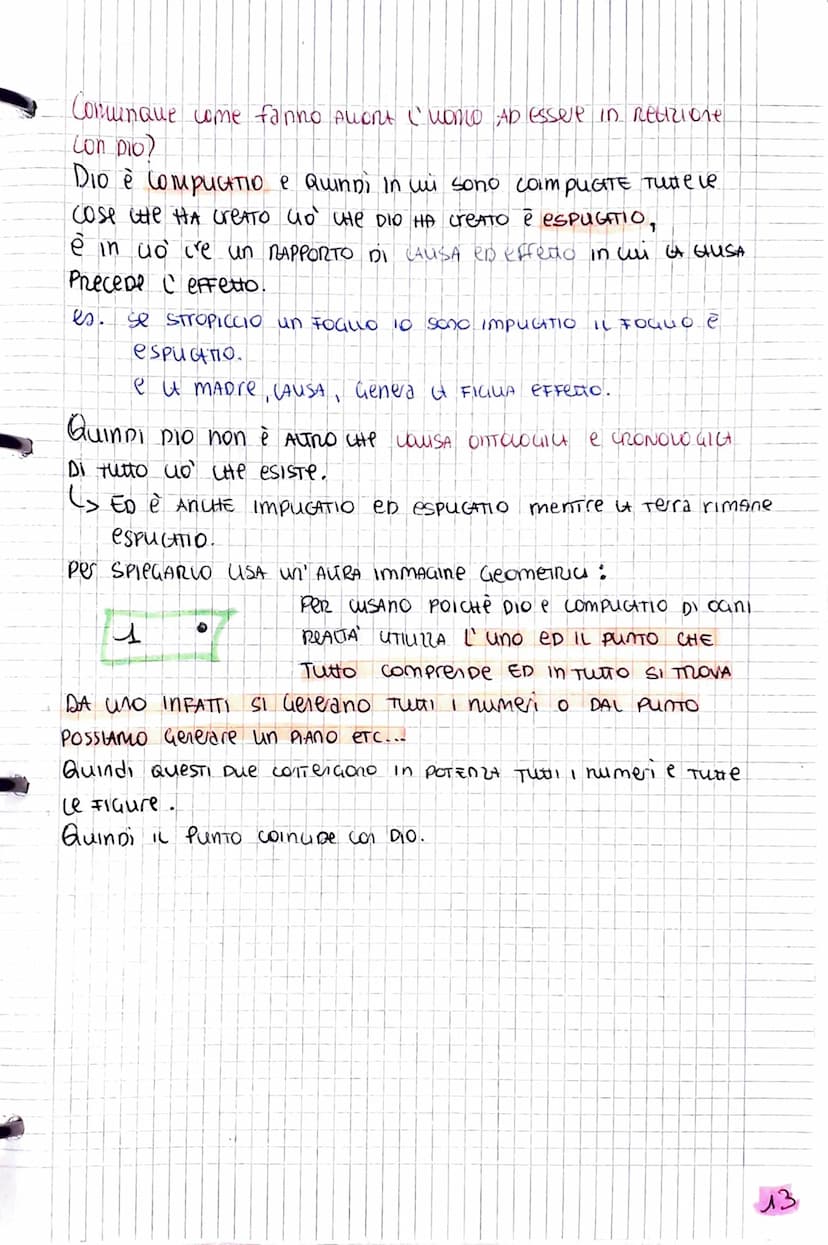 Comunque come fanno allora l'uomo ad essere in relazione
con Dio?
Dio è complicatio e quindi in cui sono complicate tutte le
cose che ha creato ciò che Dio ha creato è esplicatio,
è in ciò c'è un rapporto di causa ed effetto in cui la causa
precede l'effetto.
es. se stropiccio un foglio io sono implicatio il foglio è
esplicatio.
e la madre, causa, genera la figlia effetto.
Quindi Dio non è altro che causa ontologica e cronologica
di tutto ciò che esiste.
↳ ed è anche implicatio ed esplicatio mentre la terra rimane
esplicatio.
per spiegarlo usa un'altra immagine geometrica:
1 •
Per Cusano poichè Dio è complicatio di ogni
realtà utilizza l'uno ed il punto che
tutto comprende ed in tutto si trova
da uno infatti si generano tutti i numeri o dal punto
possiamo generare un piano etc...
Quindi questi due contengono in potenza tutti i numeri e tutte
le figure.
Quindi il punto coincide con Dio.
13